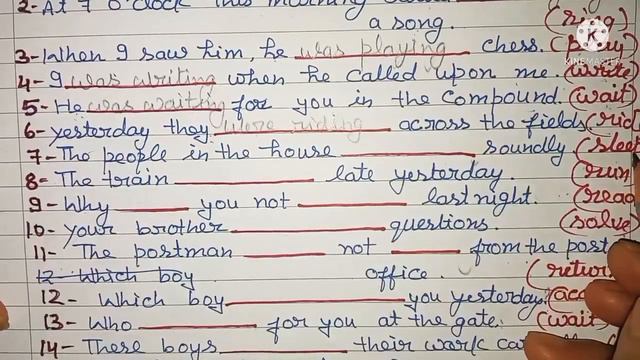 2- At 7 O'clock this morning
a song. (sing)
3- When I saw him, he was playing chess. (play)
KINEMASTER
4- I was writing when he called upon me. (write)
5- He was waiting for you in the compound. (wait)
6- yesterday they were riding across the fields (rid
7- The people in the house ______ soundly (sleep
8- The train ______ late yesterday. (run
9- Why ______ you not ______ last night. (read
10- your brother ______ questions. (solve
11- The postman ______ not ______ from the post
12 Which boy office. (return
12- Which boy ______ you yesterday. (acc
13- Who ______ for you at the gate. (wait
14- These boys ______ their work ca